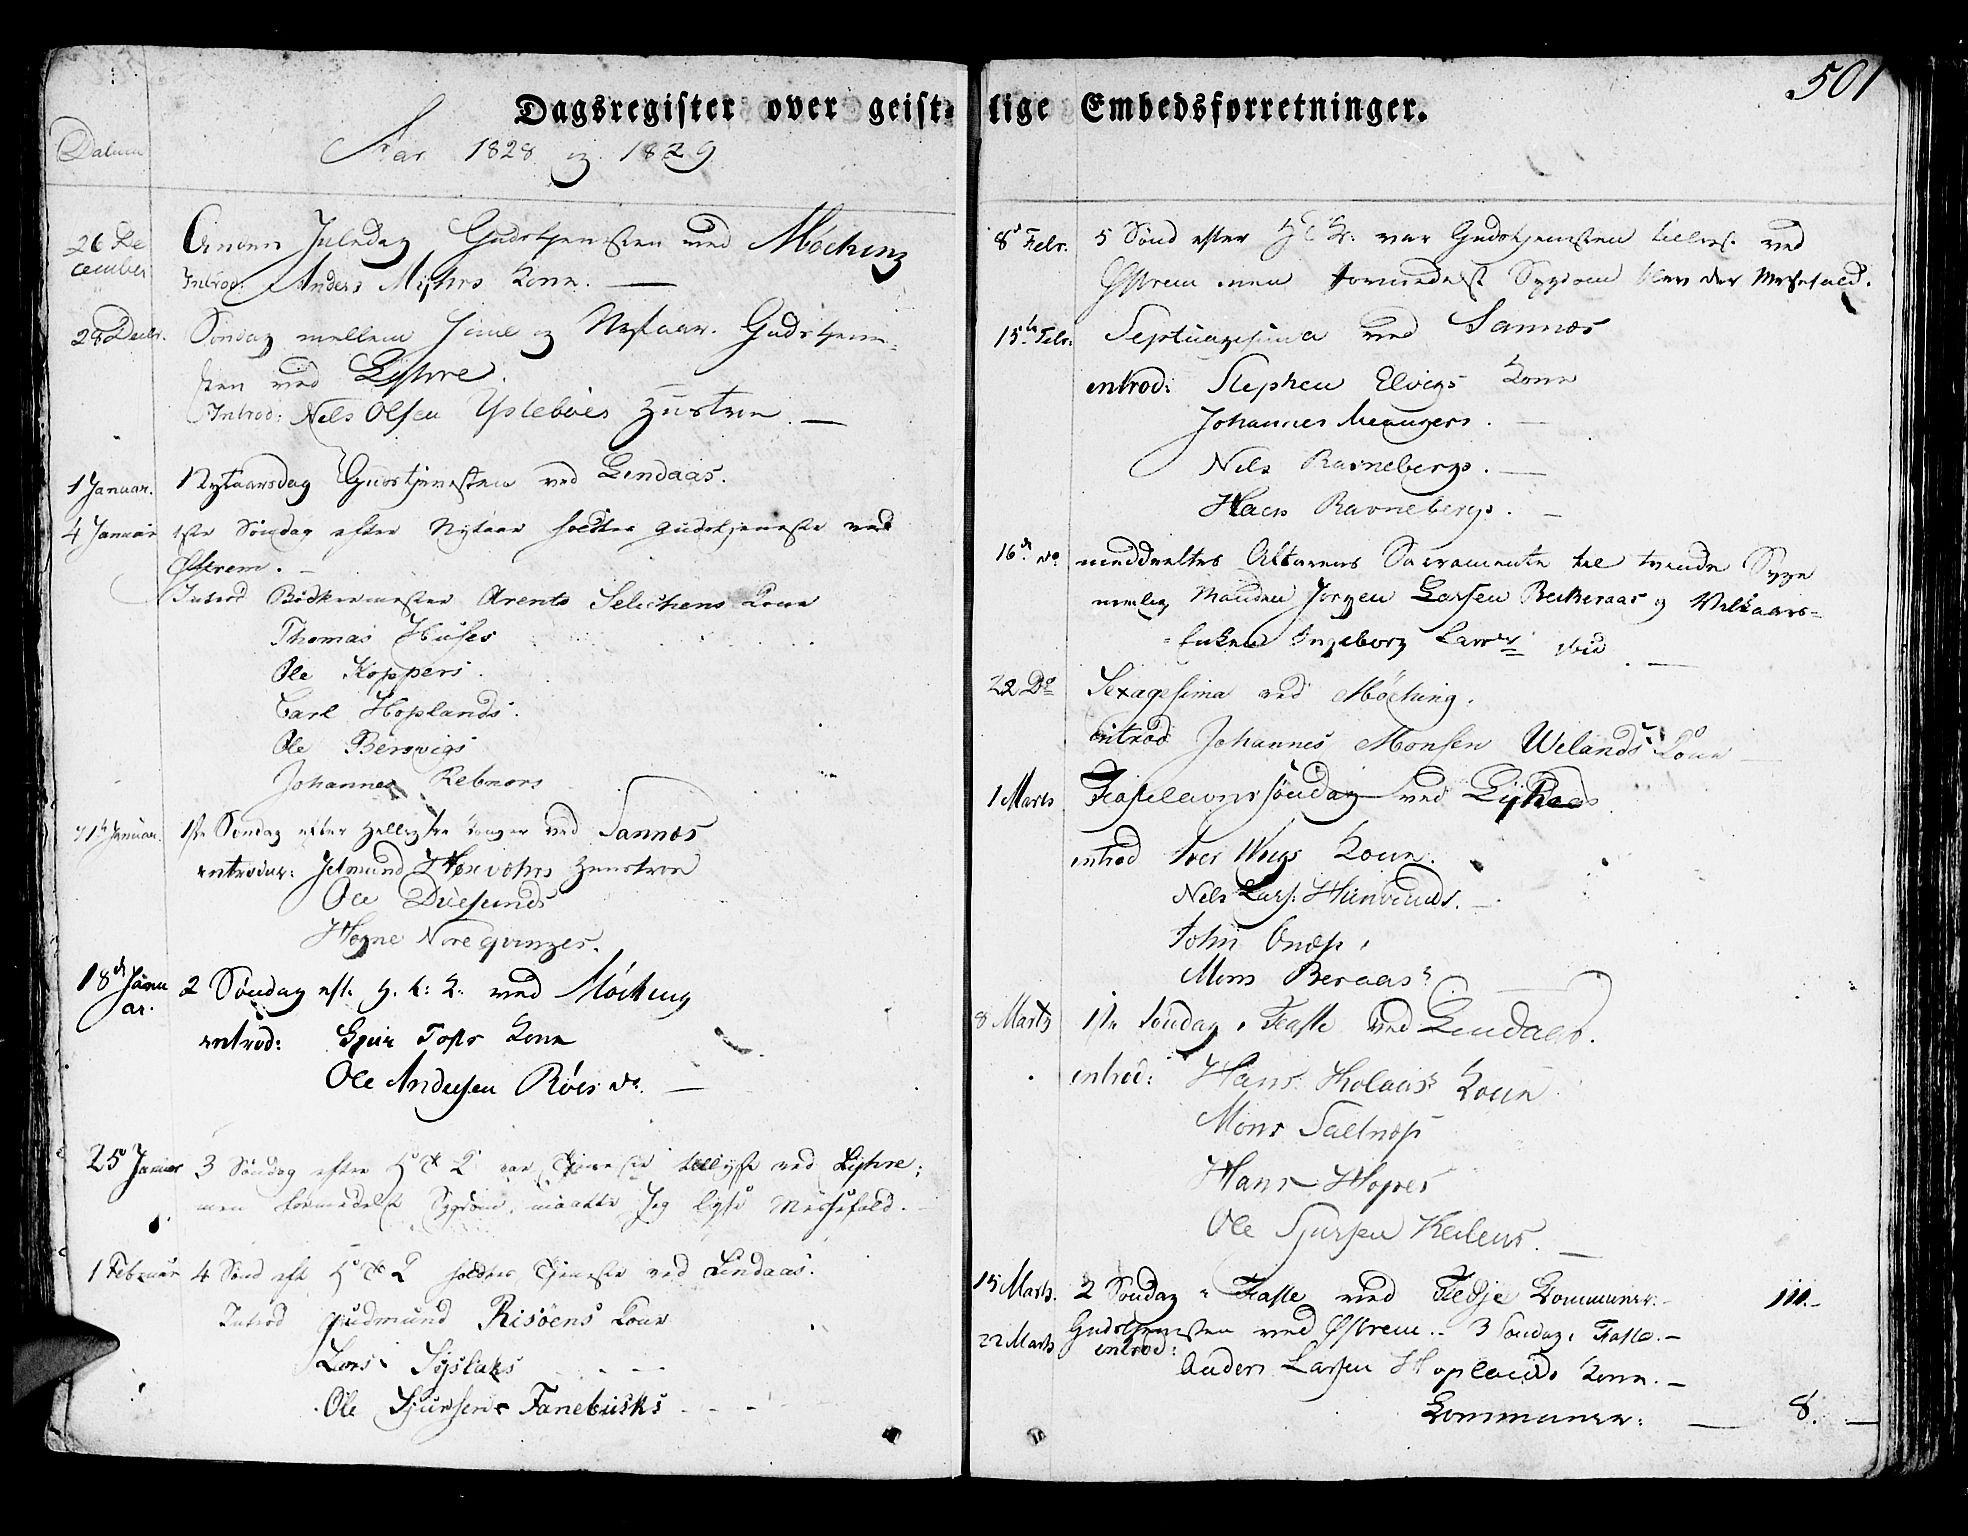 501
Dagsregister over geistlige Embedsforretninger.
Datum
Aar 1828 og 1829
26 De
cember
Anden Juledag Gudstjenesten ved Möching
Introd: Anders Myhrs Kone. —
28 Decbr.
Søndag mellem Juul og Nytaar. Gudstjene-
sten ved Lyhre.
Introd: Nels Olsen Ysteböes Hustroe. —
1 Januar.
Nytaarsdag Gudstjenesten ved Lindaas.
4 Januar
1ste Søndag efter Nytaar holdtes Gudstjeneste ved
Østrem. —
Introd Bödkermester Arents Kone
Thomas Huses
Ole Koppers.
Carl Hoplands.
Ole Bersvigs
Johannes
11te Januar.
1ste Søndag efter Hellig tre Konger ved Sannæs
introducr: Hustroe
Ole
Hogne
18de Janu
ar.
2 Søndag eft. H. t: K. ved Möching
introd: Kone
Ole Andersen Röes do. —
25 Januar
3 Søndag efter H 3 K var Tjeneste tillyst ved Lyhre;
men formedelst Sygdom, maatte Jeg lyse Messefald. —
1 Februar
4 Sönd eft H 3 K holdtes Tjeneste ved Lindaas.
Introd Gudmund Risöens Kone
Lars
Ole Sjursen Fanebusks
8de Febr.
5 Sönd efter H 3 K: var Gudstjenesten tillyst ved
Østrem men formedelst Sygdom blev der Messefald.
15te Febr:
Septuagesima ved Sannæs
introd: Stephen Elvigs Kone
Johannes Mangers. —
Nels Ravnebergs. —
Hans Ravnebergs. —
16de do
meddeeltes Altarens Sacramente til tvende Syge
nemlig Manden Jörgen Larsen og Vilkaars-
Enken Ingeborg ibid. —
22 Do
Sexagesima ved Möching.
introd Johannes Monsen Welands Kone —
1 Marts
Fastelavnssöndag ved
introd Kone.
Nels Lars: —
John
Mons Beraas
8 Marts
1ste Söndag i Faste ved Lindaas.
introd: Hans Kone
Mons
Hans
Ole Sjursen —
15 Marts.
2 Söndag i Faste ved Fedje Communer. — 111. —
22 Marts
Gudstjenesten ved Østrem. 3 Söndag i Faste. —
introd:
Anders Larsen Hoplands Kone. —
Communer: — 8. —